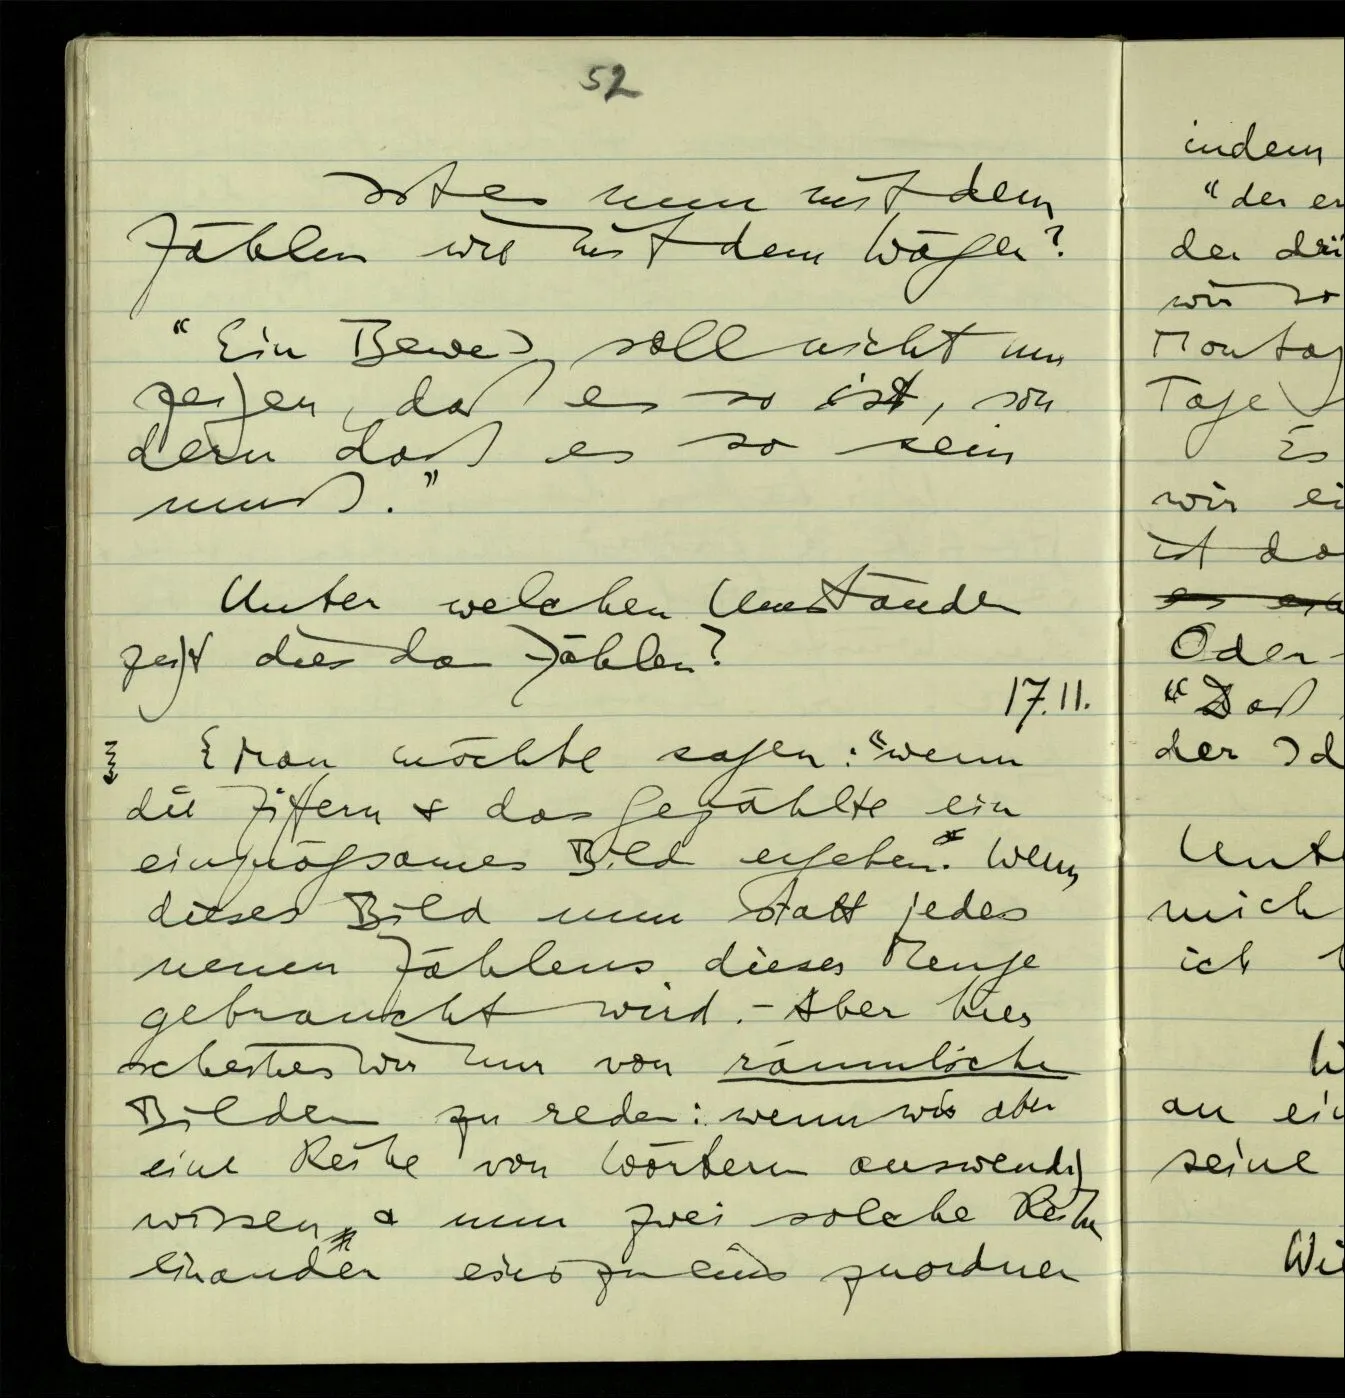 52
Ist es nun mit dem
Zählen wie mit dem Wägen?
"Ein Beweis soll nicht nur
zeigen, daß es so ist, son
dern daß es so sein
muß."
Unter welchen Umständen
zeigt dies das Zählen?
17.11.
Man möchte sagen: "wenn
die Ziffern & das Gezählte ein
einprägsames Bild ergeben. Wenn
dieses Bild nun statt jedes
neuen Zählens dieser Menge
gebraucht wird. – Aber hier
scheinen wir nur von räumlichen
Bildern zu reden: wenn wir aber
eine Reihe von Wörtern auswendig
wissen, & nun zwei solche Reihen
einander eins zu eins zuordnen
indem
"der er
der dri
wir so
Montag
Tage
Es
wir ei
ist da
Oder
"Daß
der Id
Unte
mich
ich
an ei
seine
Wi